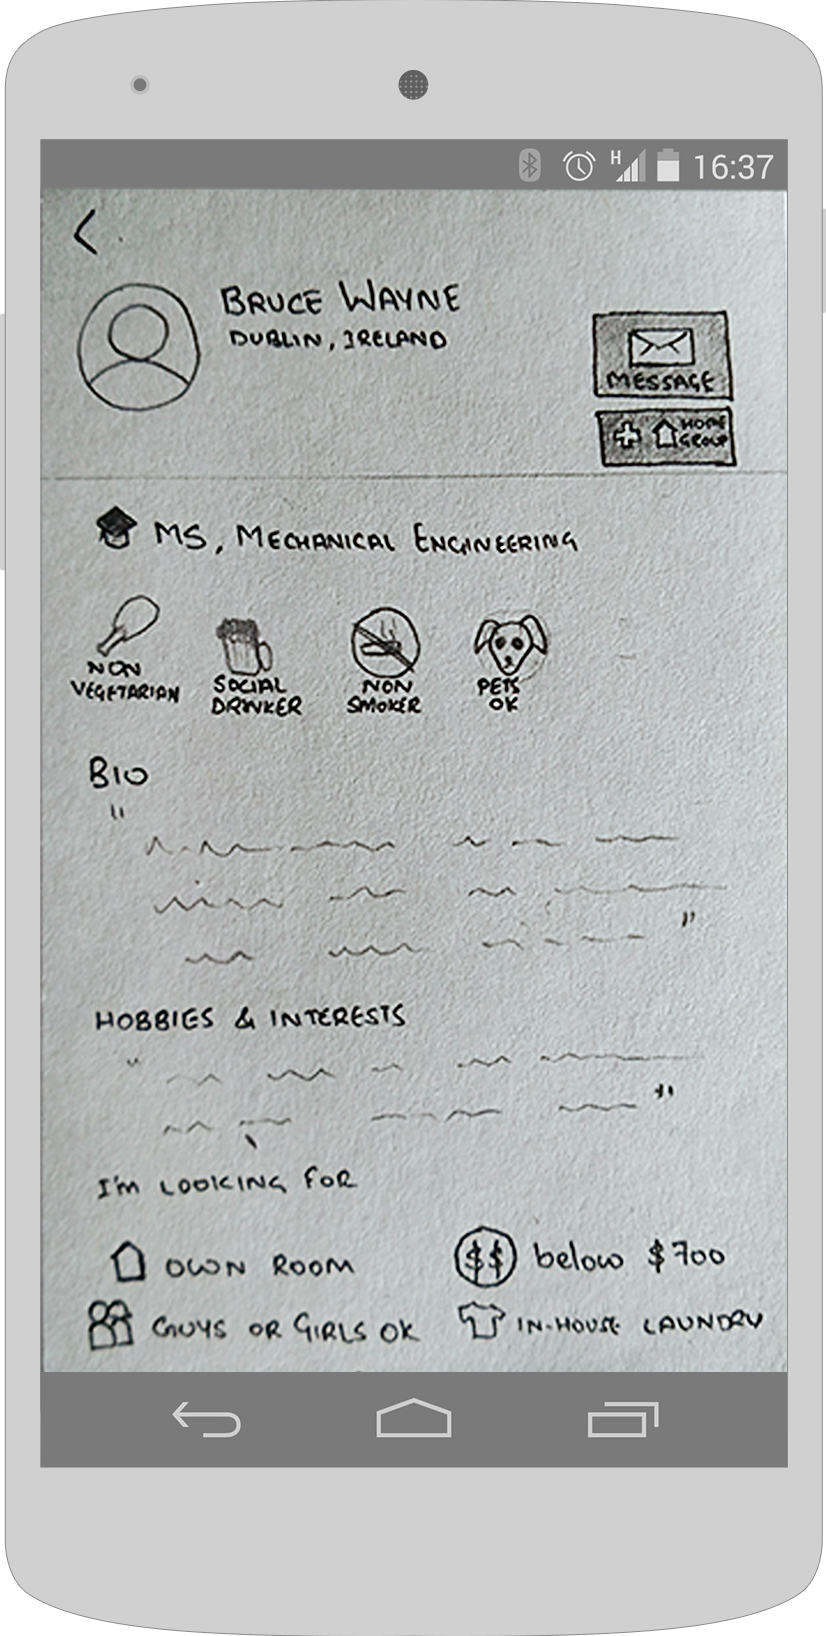 16:37
BRUCE WAYNE
DUBLIN, IRELAND
MESSAGE
HOME
GROUP
MS, MECHANICAL ENGINEERING
NON
VEGETARIAN
SOCIAL
DRINKER
NON
SMOKER
PETS
OK
BIO
"
"
HOBBIES & INTERESTS
"
"
I'm LOOKING FOR
OWN ROOM
$$ below $700
GUYS OR GIRLS OK
IN-HOUSE LAUNDRY